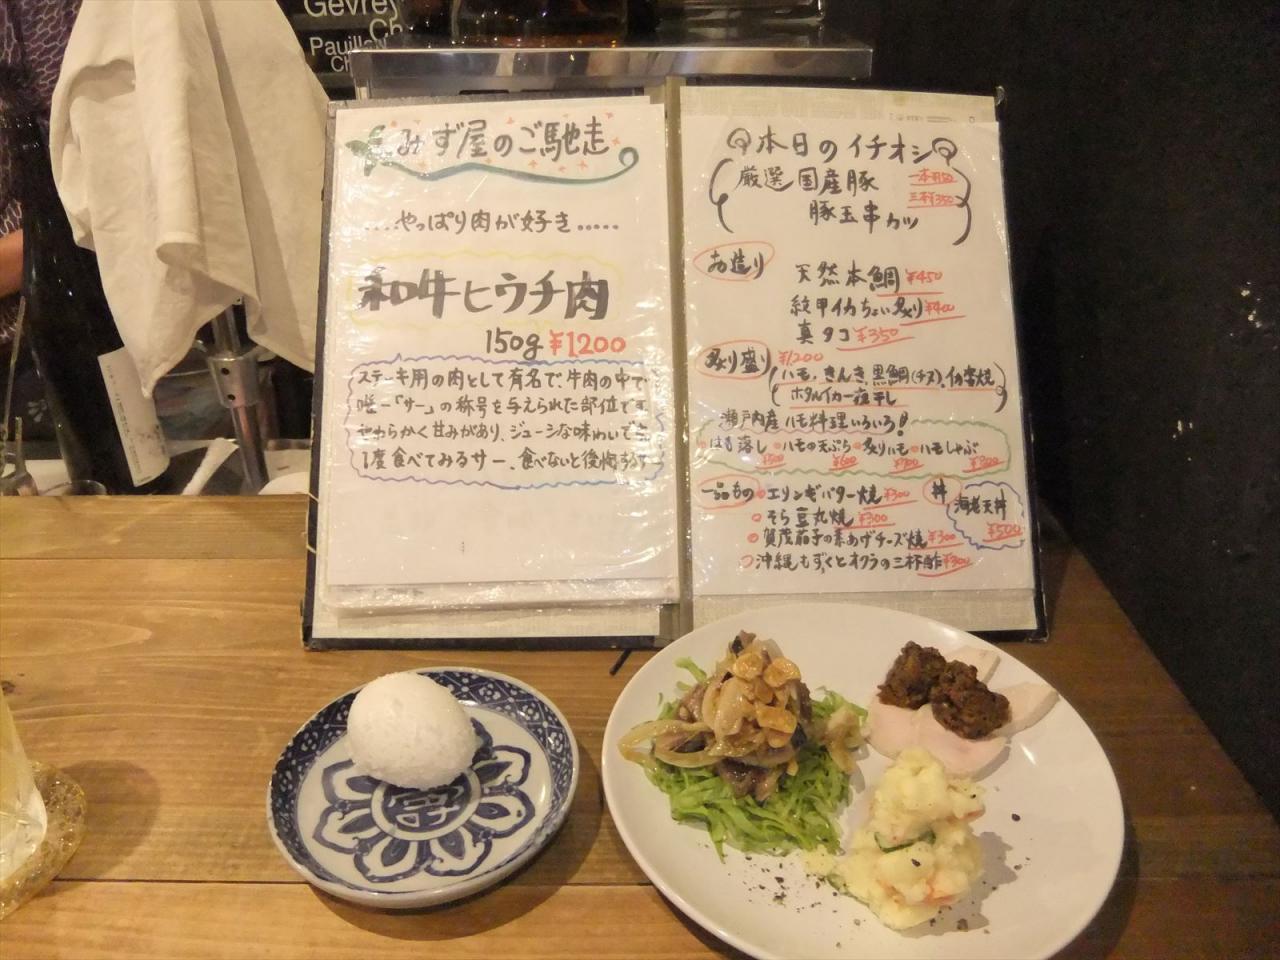 Gevrey
Ch
Pauillac
Ch
みず屋のご馳走
....やっぱり肉が好き.....
和牛ヒウチ肉
150g ¥1200
ステーキ用の肉として有名で、牛肉の中で
唯一「サー」の称号を与えられた部位です。
やわらかく甘みがあり、ジューシな味わいです
1度食べてみるサー、食べないと後悔するサー
本日のイチオシ
厳選国産豚
豚玉串カツ
一本¥150
三本¥350
お造り
天然本鯛 ¥450
紋甲イカちょい炙り ¥400
真タコ ¥350
炙り盛り ¥1200
(ハモ、きんき、黒鯛(チヌ)、イカ李焼
ホタルイカ一夜干し)
瀬戸内産ハモ料理いろいろ!
はも落し ¥500 ハモの天ぷら ¥600 炙りハモ ¥700 ハモしゃぶ
一品もの エリンギバター焼 ¥300
そら豆丸焼 ¥300
賀茂茄子の素あげチーズ焼 ¥300
沖縄もずくとオクラの三杯酢 ¥300
丼
海老天丼
¥500